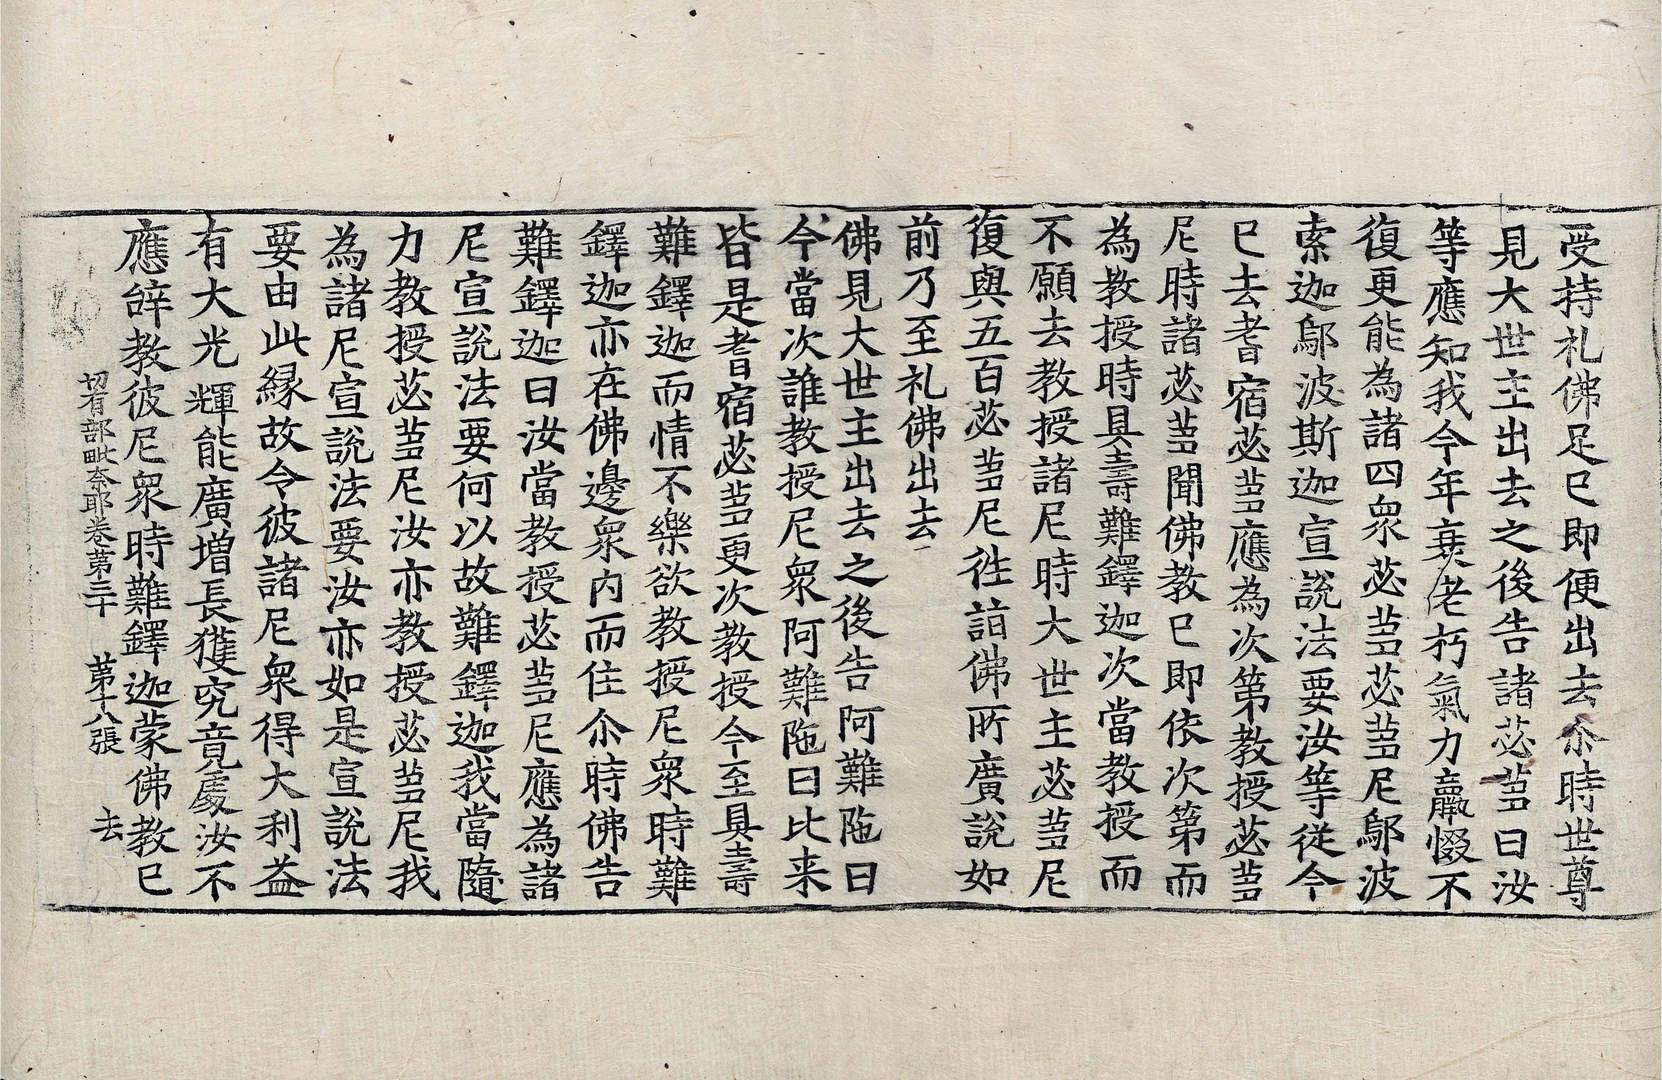 受持礼佛足已即便出去尒時世尊
見大世主出去之後告諸苾芻曰汝
等應知我今年衰老朽氣力羸惙不
復更能為諸四衆苾芻苾芻尼鄔波
索迦鄔波斯迦宣說法要汝等從今
已去耆宿苾芻應為次第教授苾芻
尼時諸苾芻聞佛教已即依次第而
為教授時具壽難鐸迦次當教授而
不願去教授諸尼時大世主苾芻尼
復與五百苾芻尼往詣佛所廣說如
前乃至礼佛出去
佛見大世主出去之後告阿難陁曰
今當次誰教授尼衆阿難陁曰比来
皆是耆宿苾芻更次教授今至具壽
難鐸迦而情不樂欲教授尼衆時難
鐸迦亦在佛邊衆內而住尒時佛告
難鐸迦曰汝當教授苾芻尼應為諸
尼宣說法要何以故難鐸迦我當隨
力教授苾芻尼汝亦教授苾芻尼我
為諸尼宣說法要汝亦如是宣說法
要由此緣故令彼諸尼衆得大利益
有大光輝能廣增長獲究竟處汝不
應辝教彼尼衆時難鐸迦蒙佛教已
切有部毗奈耶卷第三十 第十八張 去